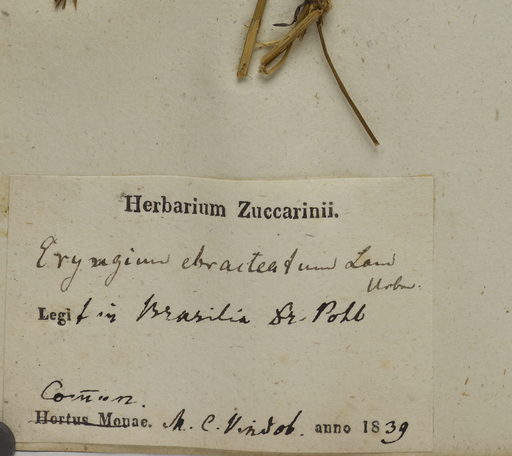 Herbarium Zuccarinii.
Eryngium ebracteatum Lam
Urbn.
Legit in Brasilia Dr. Pohl
Comun.
Hortus Monac. M. C. Vindob. anno 1839